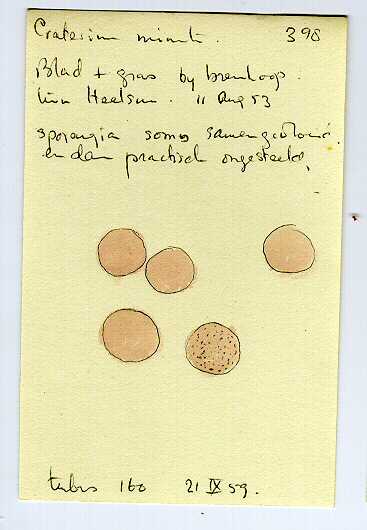 Craterium minut. 398
Blad + gras by
11 Aug 53
sporangia soms samengevloeid.
en dan practisch ongesteeld,
tubus 160 21 IX 59.